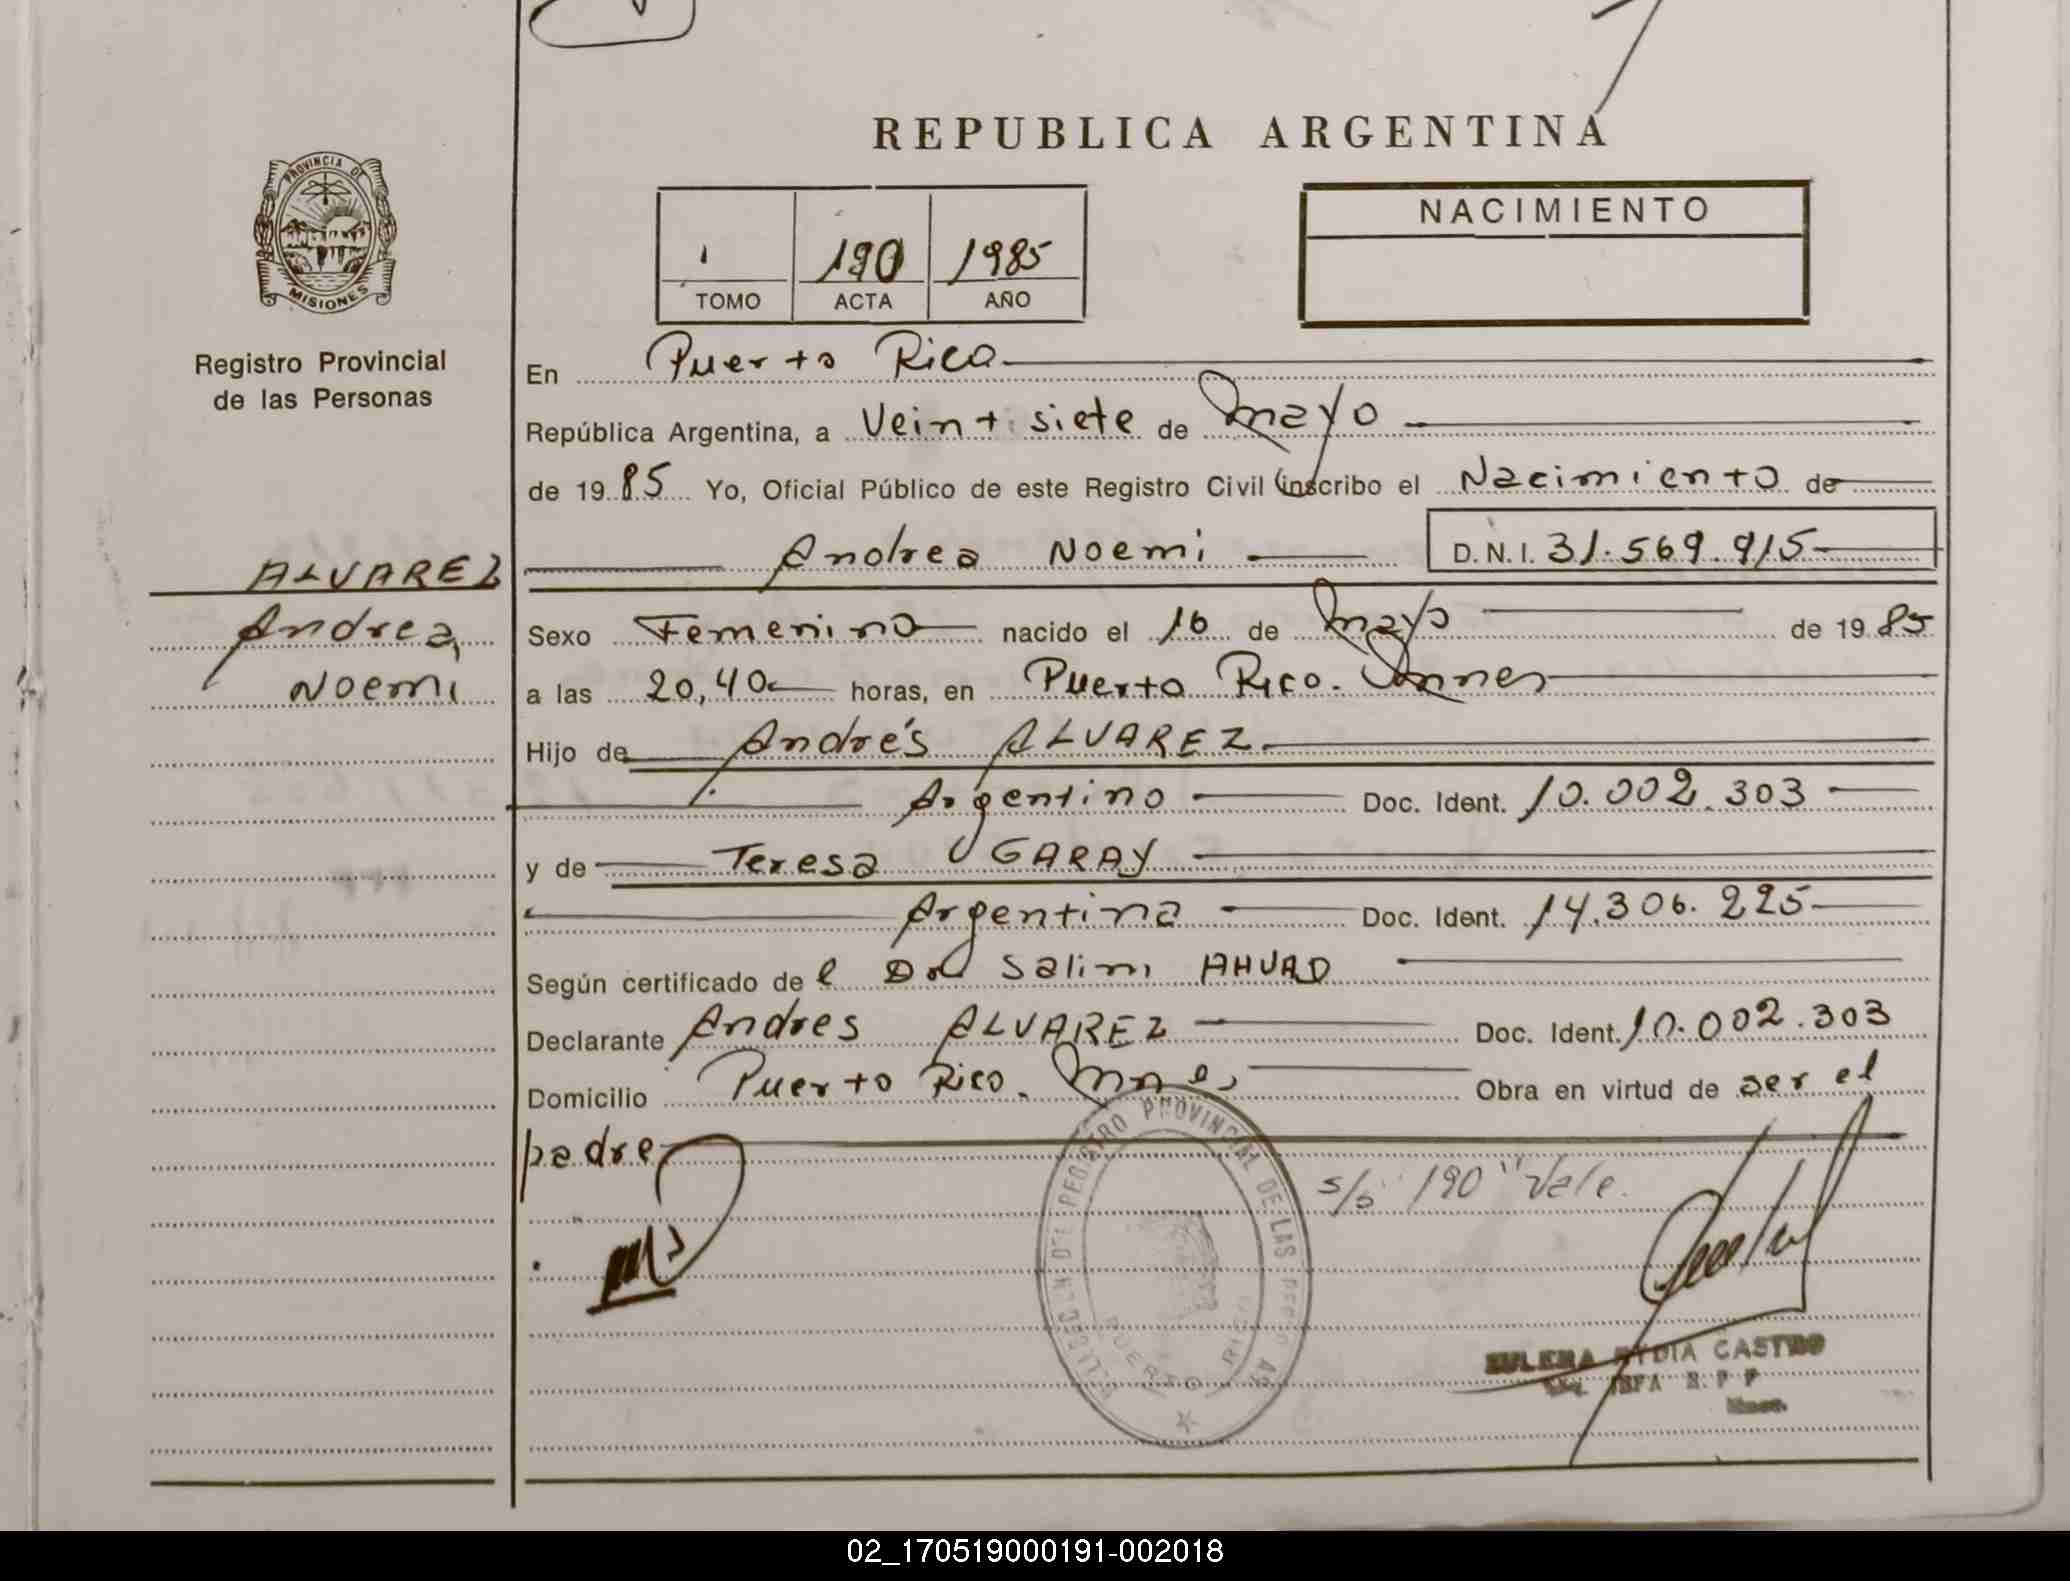 REPUBLICA ARGENTINA
PROVINCIA DE
MISIONES
Registro Provincial
de las Personas
1 190 1985
TOMO ACTA AÑO
NACIMIENTO
En Puerto Rico
República Argentina, a Veintisiete de Mayo
de 1985 Yo, Oficial Público de este Registro Civil inscribo el Nacimiento de
Andrea Noemi D.N.I. 31.569.915
ALVAREZ
Andrea
Noemi
Sexo Femenino nacido el 16 de Mayo de 1985
a las 20,40 horas, en Puerto Rico. Mnes
Hijo de Andrés ALVAREZ
Argentino Doc. Ident. 10.002.303
y de Teresa GARAY
Argentina Doc. Ident. 14.306.225
Según certificado del Dr Salim AHUAD
Declarante Andres ALVAREZ Doc. Ident. 10.002.303
Domicilio Puerto Rico. Mnes Obra en virtud de ser el
padre
s/b "190" Vale.
DEL REGISTRO PROVINCIAL DE LAS
PUERTO RICO
CASTRO
02_170519000191-002018